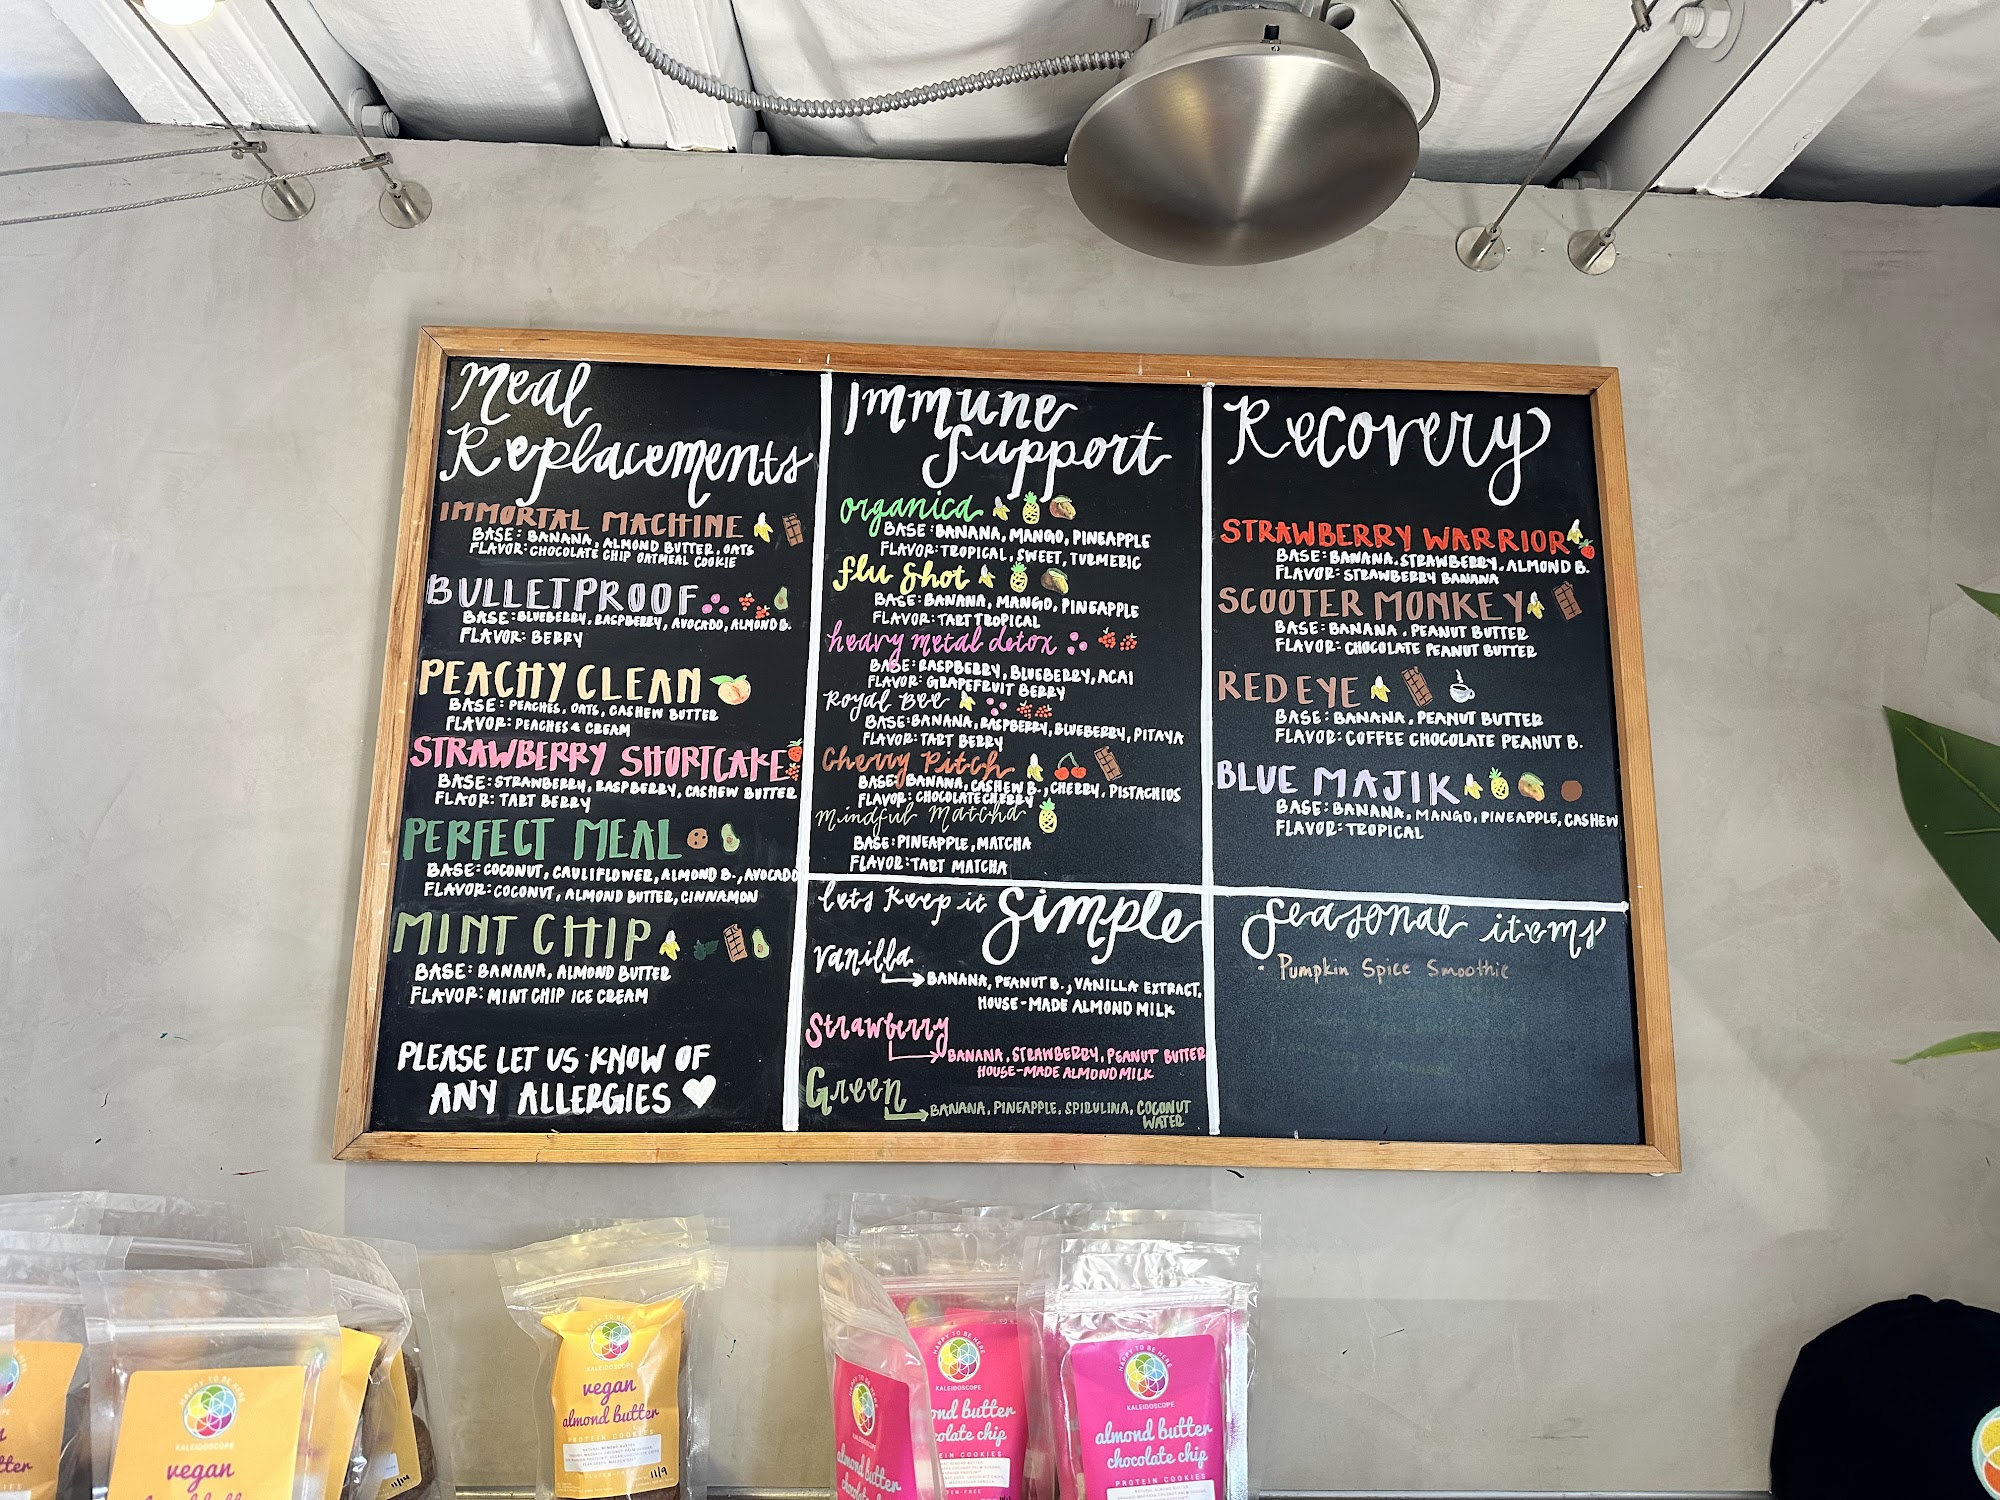 Meal
Replacements
IMMORTAL MACHINE
BASE: BANANA, ALMOND BUTTER, OATS
FLAVOR: CHOCOLATE CHIP OATMEAL COOKIE
BULLETPROOF
BASE: BLUEBERRY, RASPBERRY, AVOCADO, ALMOND B.
FLAVOR: BERRY
PEACHY CLEAN
BASE: PEACHES, OATS, CASHEW BUTTER
FLAVOR: PEACHES & CREAM
STRAWBERRY SHORTCAKE
BASE: STRAWBERRY, RASPBERRY, CASHEW BUTTER
FLAOR: TART BERRY
PERFECT MEAL
BASE: COCONUT, CAULIFLOWER, ALMOND B., AVOCADO
FLAVOR: COCONUT, ALMOND BUTTER, CINNAMON
MINT CHIP
BASE: BANANA, ALMOND BUTTER
FLAVOR: MINT CHIP ICE CREAM
PLEASE LET US KNOW OF
ANY ALLERGIES
Immune
Support
organica
BASE: BANANA, MANGO, PINEAPPLE
FLAVOR: TROPICAL, SWEET, TURMERIC
flu shot
BASE: BANANA, MANGO, PINEAPPLE
FLAVOR: TART TROPICAL
heavy metal detox
BASE: RASPBERRY, BLUEBERRY, ACAI
FLAVOR: GRAPEFRUIT BERRY
Royal Bee
BASE: BANANA, RASPBERRY, BLUEBERRY, PITAYA
FLAVOR: TART BERRY
Cherry Pitch
BASE: BANANA, CASHEW B., CHERRY, PISTACHIOS
FLAVOR: CHOCOLATE CHERRY
Mindful Matcha
BASE: PINEAPPLE, MATCHA
FLAVOR: TART MATCHA
lets keep it Simple
Vanilla
BANANA, PEANUT B., VANILLA EXTRACT,
HOUSE-MADE ALMOND MILK
Strawberry
BANANA, STRAWBERRY, PEANUT BUTTER
HOUSE-MADE ALMOND MILK
Green
BANANA, PINEAPPLE, SPIRULINA, COCONUT
WATER
Recovery
STRAWBERRY WARRIOR
BASE: BANANA, STRAWBERRY, ALMOND B.
FLAVOR: STRAWBERRY BANANA
SCOOTER MONKEY
BASE: BANANA, PEANUT BUTTER
FLAVOR: CHOCOLATE PEANUT BUTTER
RED EYE
BASE: BANANA, PEANUT BUTTER
FLAVOR: COFFEE CHOCOLATE PEANUT B.
BLUE MAJIK
BASE: BANANA, MANGO, PINEAPPLE, CASHEW
FLAVOR: TROPICAL
Seasonal items
• Pumpkin Spice Smoothie
HAPPY TO BE HERE
KALEIDOSCOPE
vegan
11/14
HAPPY TO BE HERE
KALEIDOSCOPE
vegan
almond butter
PROTEIN COOKIES
11/9
almond butter
HAPPY TO BE HERE
KALEIDOSCOPE
HAPPY TO BE HERE
KALEIDOSCOPE
almond butter
chocolate chip
PROTEIN COOKIES